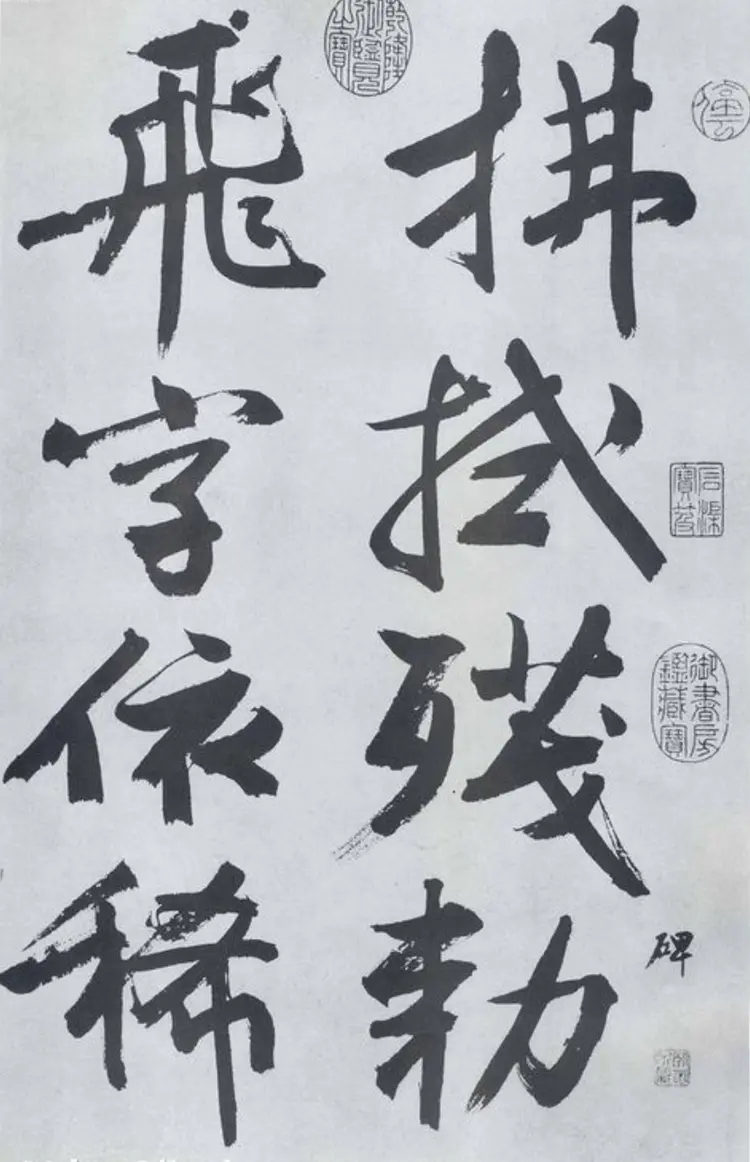 石渠寶笈
御書房鑑藏寶
碑
拂拭殘勅
乾隆御覽之寶
飛字依稀